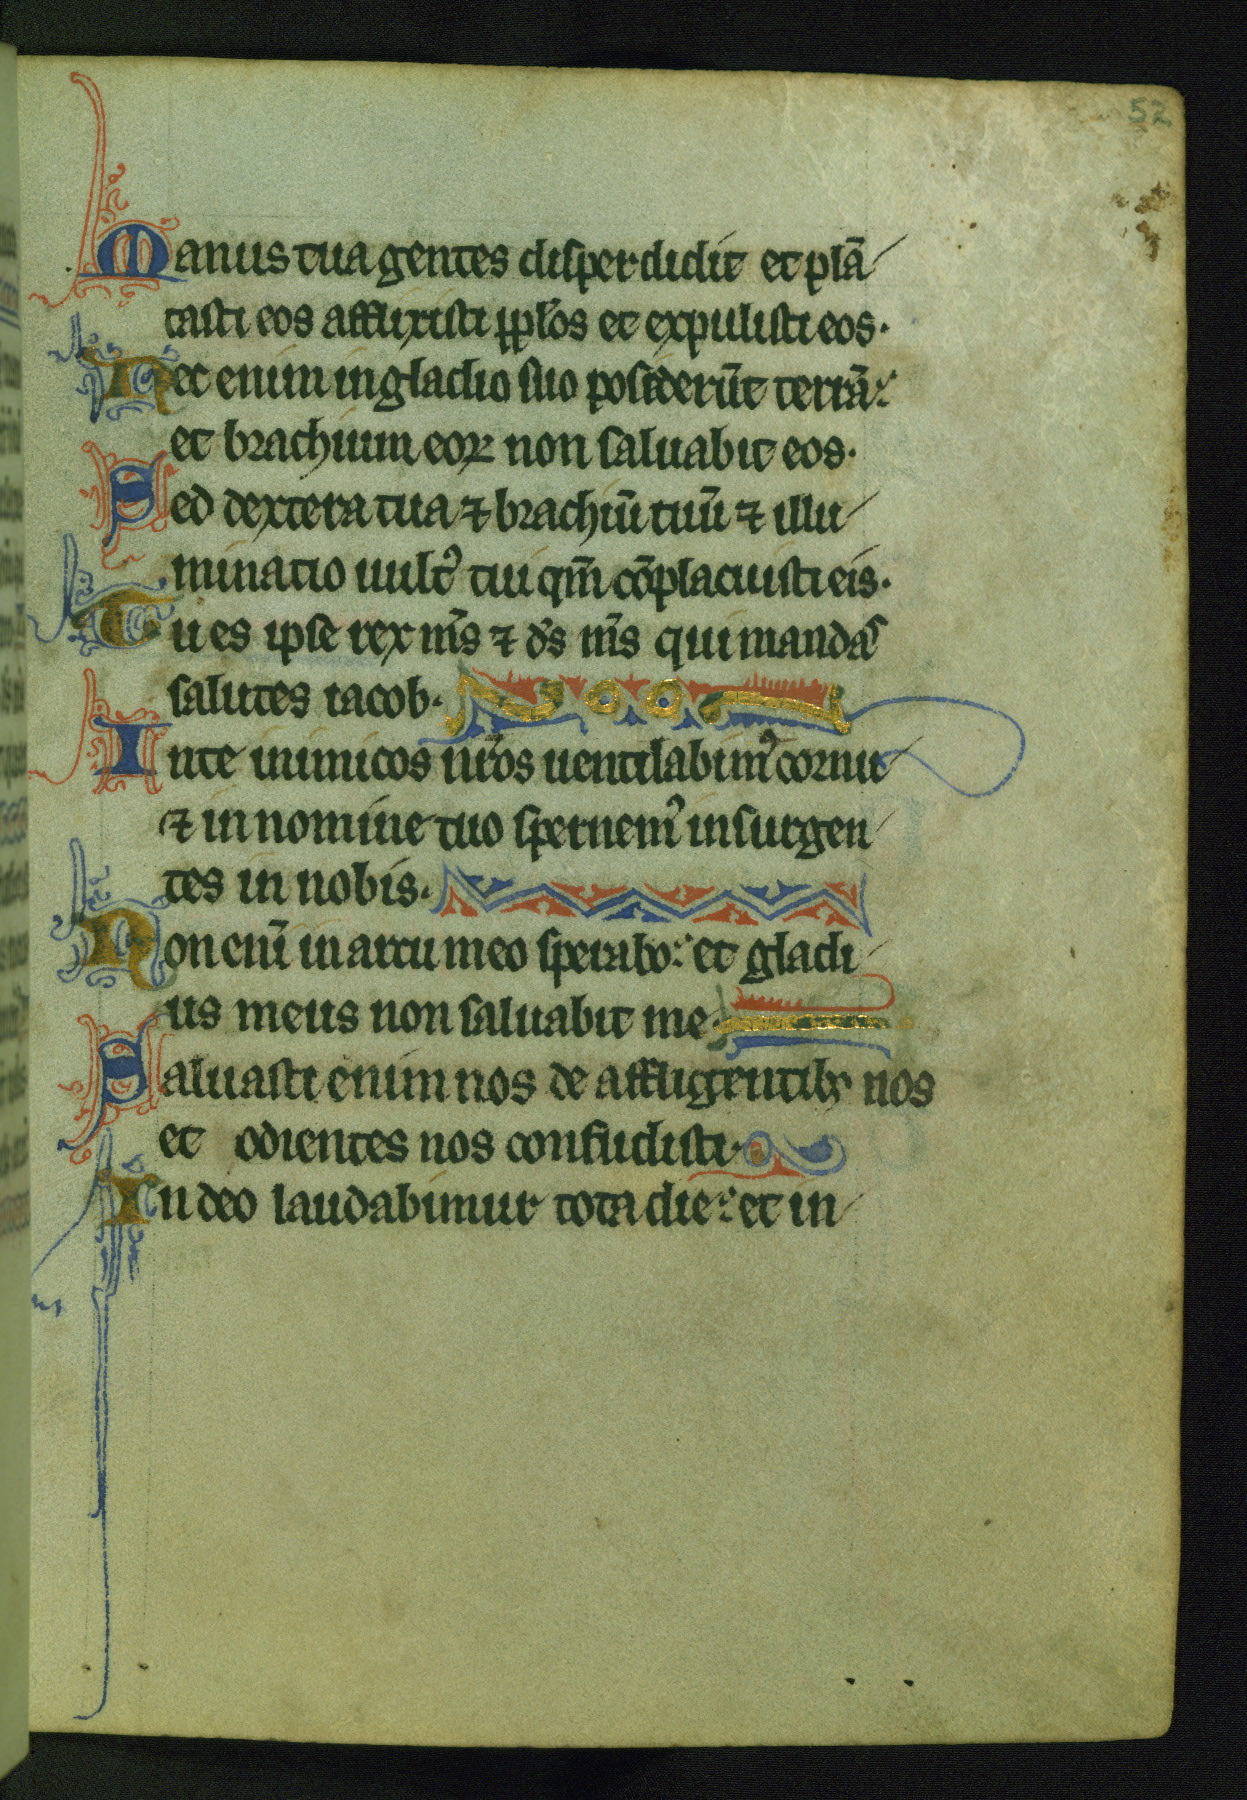 52
Manus tua gentes disperdidit et plā
tasti eos afflixisti pplōs et expulisti eos.
Nec enim in gladio suo posiderūt terrā:
et brachium eoꝝ non saluabit eos.
Sed dextera tua ⁊ brachiū tuū ⁊ illu
minatio uultꝰ tui qm̄ cōplacuisti eis.
Tu es ipse rex m̄s ⁊ ds̄ m̄s qui mandas
salutes iacob.
In te inimicos nr̄os uentilabimꝰ cornu
⁊ in nomine tuo spernemꝰ insurgen
tes in nobis.
Non eni̅ in arcu meo sperabo: et gladi
us meus non saluabit me.
Saluasti enim nos de affligentibꝫ nos
et odientes nos confudisti.
In deo laudabimur tota die: et in